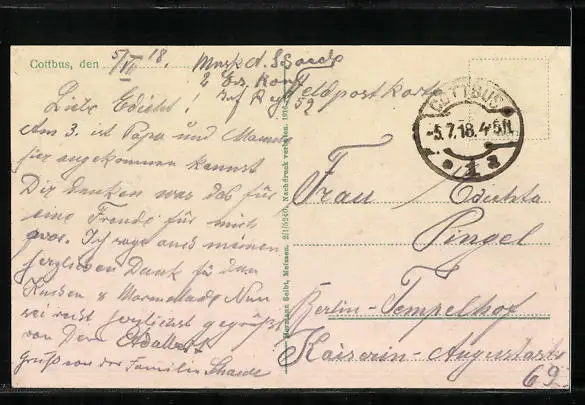 Cottbus, den 5/VII 18.
Musk d. Schaede
2 Ers. Komp
Inf Rgt 52
Feldpostkarte
Liebe Edith!
Am 3. ist Papa und Mama
hier angekommen kannst
Dir denken was das für
eine Freude für mich
war. Ich sage auch meinen
herzlichen Dank für den
Kuchen & Marmelade Nun
sei recht herzlichst gegrüßt
von Dein Adalbert
Gruß von der Familie Schaede
Hermann Seibt, Meissen. 2/15240. Nachdruck verboten. 1916
COTTBUS
-5.7.18.4-5N
* 1 a
Frau Edith
Pingel
Berlin-Tempelhof
Kaiserin-Augustastr
69